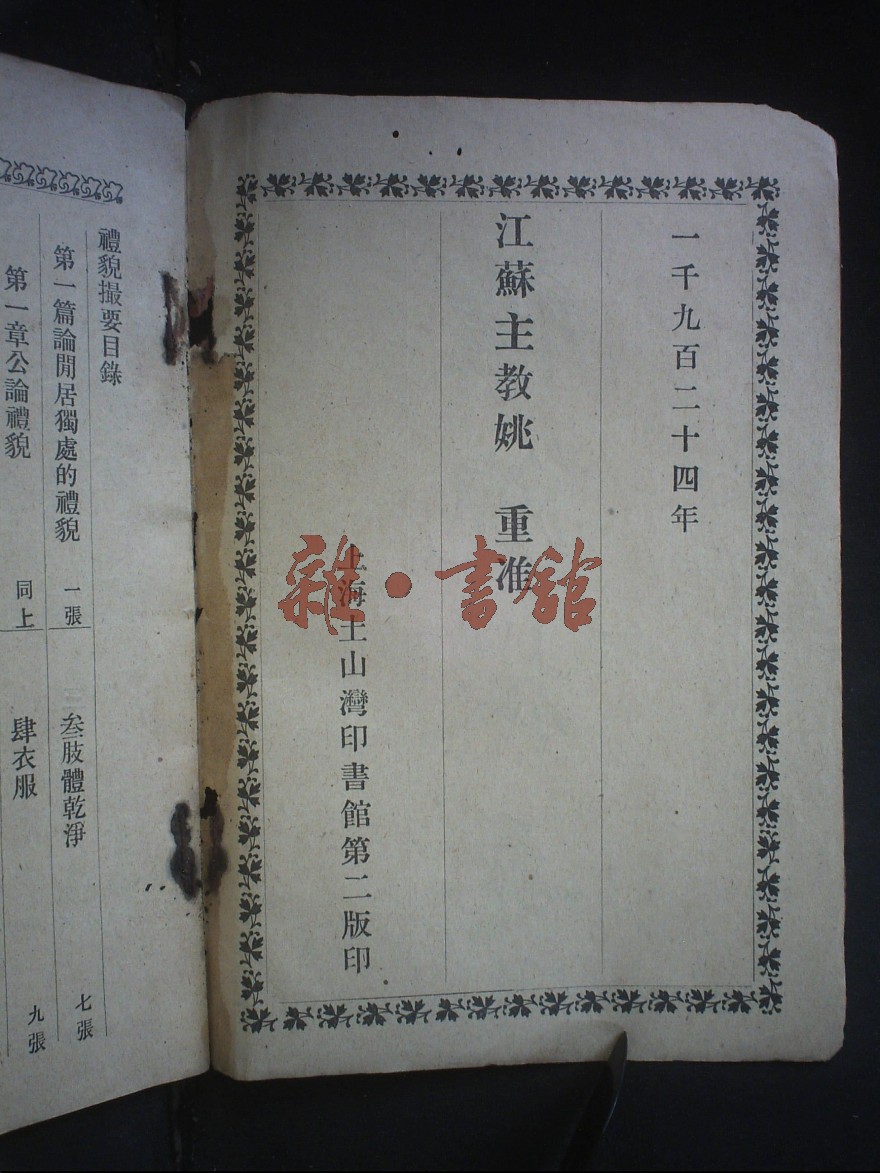 一千九百二十四年
江蘇主教姚　重准
上海土山灣印書館第二版印
雜·書館
禮貌撮要目錄
第一篇論閒居獨處的禮貌　一張
第一章公論禮貌　同上
叁肢體乾淨　七張
肆衣服　九張